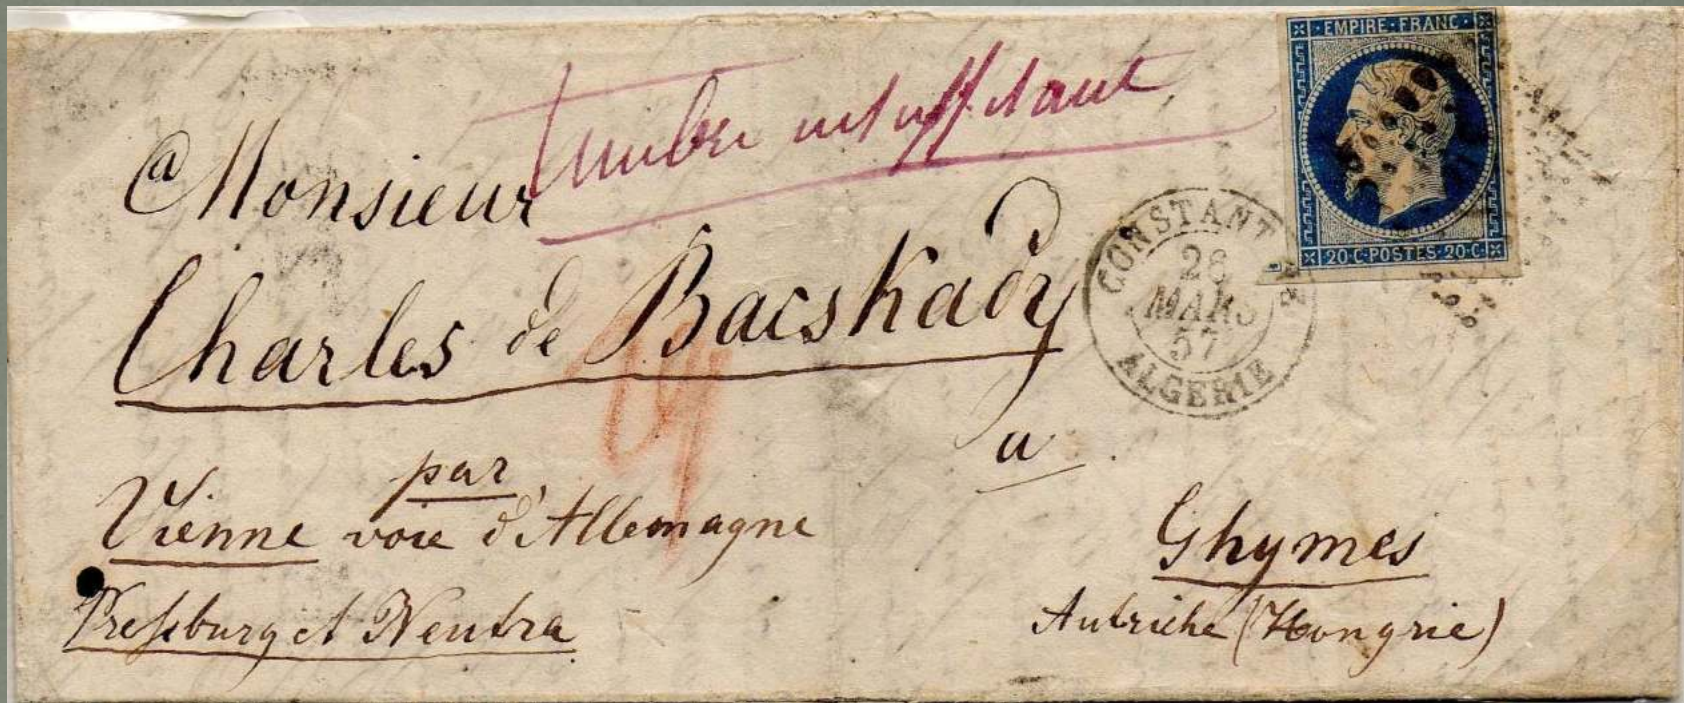 EMPIRE·FRANC·
20·C·POSTES·20·C·
Timbre insuffisant
A Monsieur
Charles de Bacskady
CONSTANTINE
26
MARS
57
ALGERIE
a
par
Vienne voie d'Allemagne
Ghymes
Pressburg et Neutra
Autriche (Hongrie)